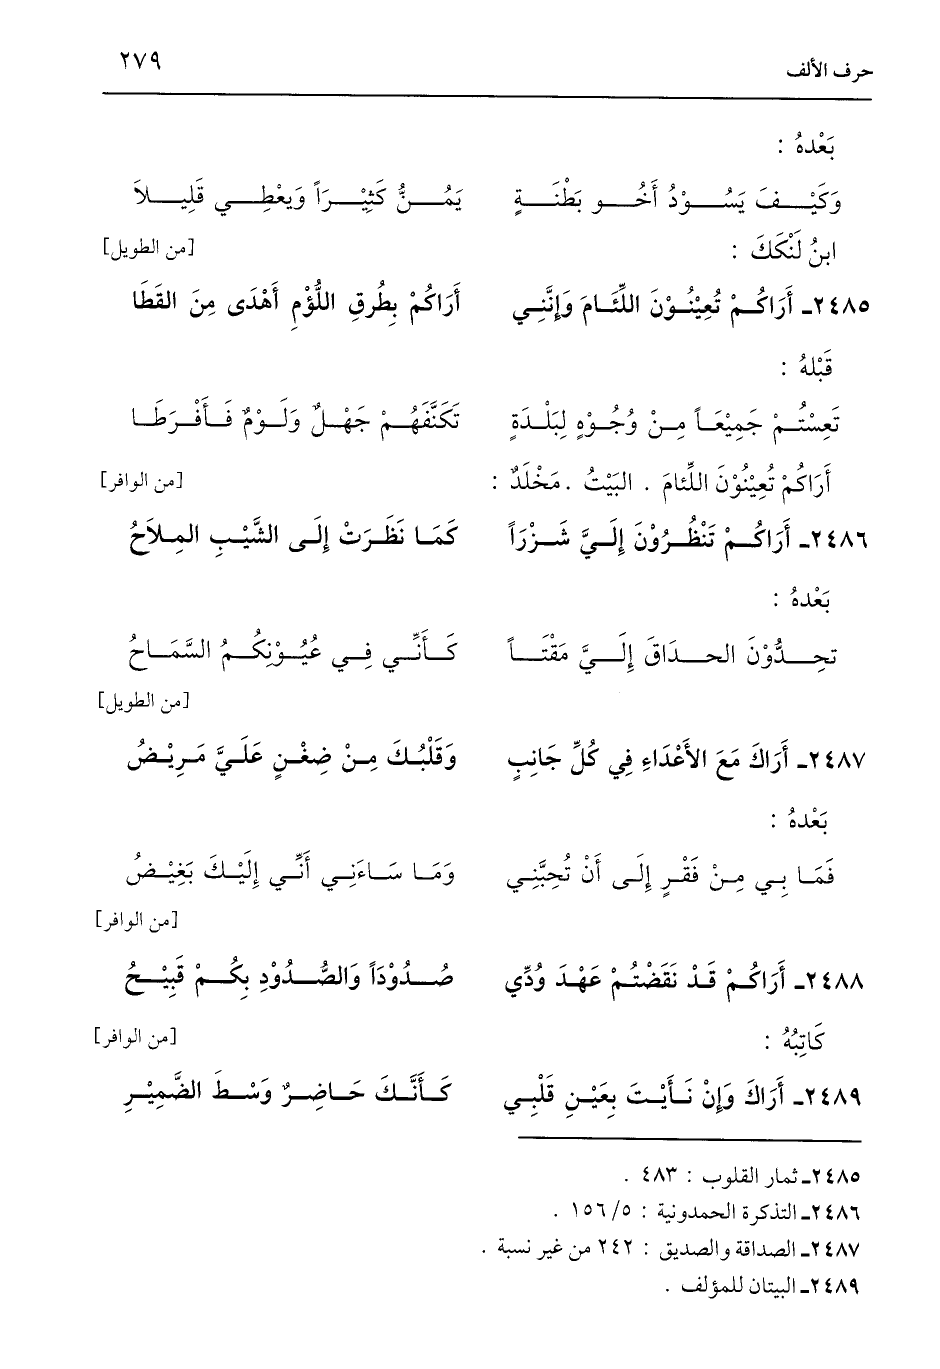 حرف الألف ٢٧٩
بَعْدهُ :
وَكَيْـفَ يَسُـوْدُ أَخُـو بَطْنَـةٍ يَمُـنُّ كَثِيْـراً وَيعْطِـي قَلِيـلاَ
ابنُ لَنْكَكَ : [من الطويل]
٢٤٨٥ـ أَرَاكُـمْ تُعِيْنُـوْنَ اللِّئَـامَ وَإِنَّنِـي أَرَاكُمْ بِطُرقِ اللُّؤْمِ أَهْدَى مِنَ القَطَا
قَبْلهُ :
تَعِسْتُـمْ جَمِيْعَـاً مِـنْ وُجُـوْهٍ لِبَلْـدَةٍ تَكَنَّفَهُـمْ جَهْـلٌ وَلَـوْمٌ فَـأَفْـرَطَـا
أَرَاكُمْ تُعِيْنُوْنَ اللِّئامَ . البَيْتُ . مَخْلَدٌ : [من الوافر]
٢٤٨٦ـ أَرَاكُـمْ تَنْظُـرُوْنَ إِلَـيَّ شَـزْرَاً كَمَـا نَظَـرَتْ إِلَـى الشَّيْـبِ المِـلاَحُ
بَعْدهُ :
تحِـدُّوْنَ الحـدَاقَ إِلَـيَّ مَقْتَـاً كَـأَنِّـي فِـي عُيُـوْنِكُـمُ السَّمَـاحُ
[من الطويل]
٢٤٨٧ـ أَرَاكَ مَعَ الأَعْدَاءِ فِي كُلِّ جَانِبٍ وَقَلْبُـكَ مِـنْ ضِغْـنٍ عَلَـيَّ مَـرِيْـضُ
بَعْدهُ :
فَمَـا بِـي مِـنْ فَقْـرٍ إِلَـى أَنْ تُحِبَّنِـي وَمَـا سَـاءَنِـي أَنَّـي إِلَيْـكَ بَغِيْـضُ
[من الوافر]
٢٤٨٨ـ أَرَاكُـمْ قَـدْ نَقَضْتُـمْ عَهْـدَ وُدِّي صُـدُوْدَاً وَالصُّـدُوْدِ بِكُـمْ قَبِيْـحُ
كَاتِبُهُ : [من الوافر]
٢٤٨٩ـ أَرَاكَ وَإِنْ نَـأَيْـتَ بِعَيْـنِ قَلْبِـي كَـأَنَّـكَ حَـاضِـرٌ وَسْـطَ الضَّمِيْـرِ
٢٤٨٥ـ ثمار القلوب : ٤٨٣ .
٢٤٨٦ـ التذكرة الحمدونية : ٥/ ١٥٦ .
٢٤٨٧ـ الصداقة والصديق : ٢٤٢ من غير نسبة .
٢٤٨٩ـ البيتان للمؤلف .